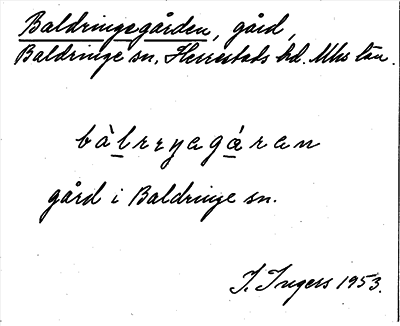 Baldringegården, gård,
Baldringe sn. Herrestads hd. Mhs län.
bàlrɪŋagáran
gård i Baldringe sn.
I. Ingers 1953.